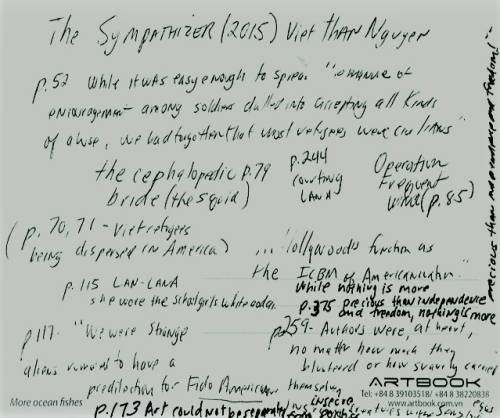 The SYMPATHIZER (2015) Viet THAN Nguyen
p.52 While it was easy enough to spread "romance of
encouragement among soldiers dulled into accepting all kinds
of abuse, we had forgotten that most refugees were civilians"
the cephalopodic p.79
bride (the squid)
p.244
courting
LANA
Operation
Frequent
Wind (p.85)
(p.70,71 - Viet refugees
being dispersed in America)
... "Hollywood's function as
the ICBM of Americanization"
p.115 LAN-LANA
she wore the schoolgirl's white aodai
while nothing is more
p.375 precious than independence
and freedom, nothing is more
precious than independence and freedom!"
p.117 "We were strange
aliens rumored to have a
predilection for Fido Americanus
p.259 - Authors were, at heart,
no matter how much they
blustered or how suavely carried
themselves
p.173 Art could not be separated
insecure
creatures
More ocean fishes
ARTBOOK
Tel: +84 8 39103518/ +84 8 38220838
www.artbook.com.vn